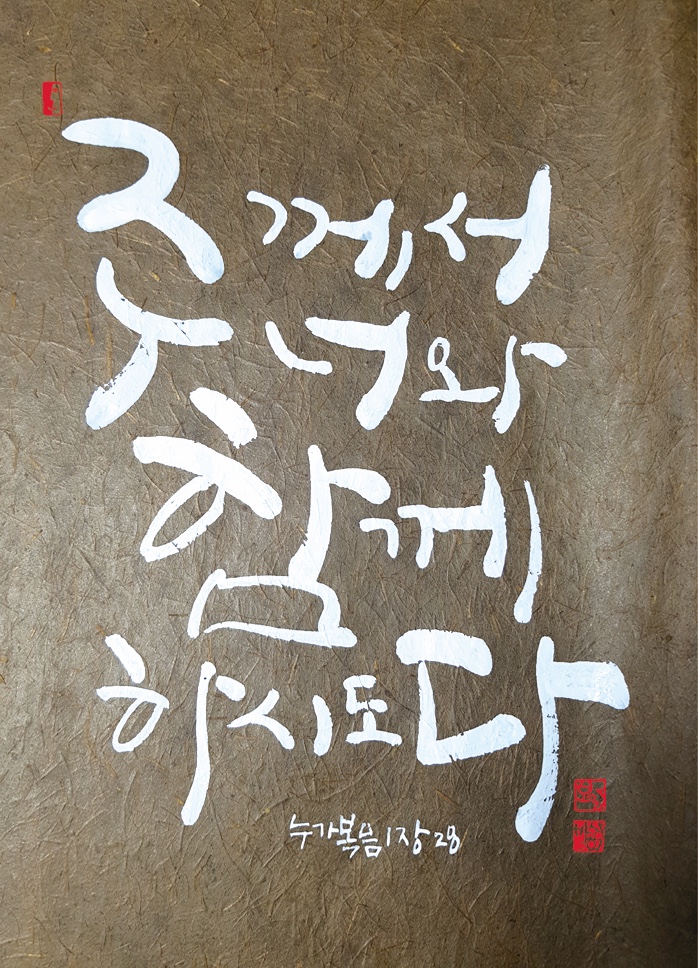 주께서
너와
함께
하시도다
누가복음 1장 28